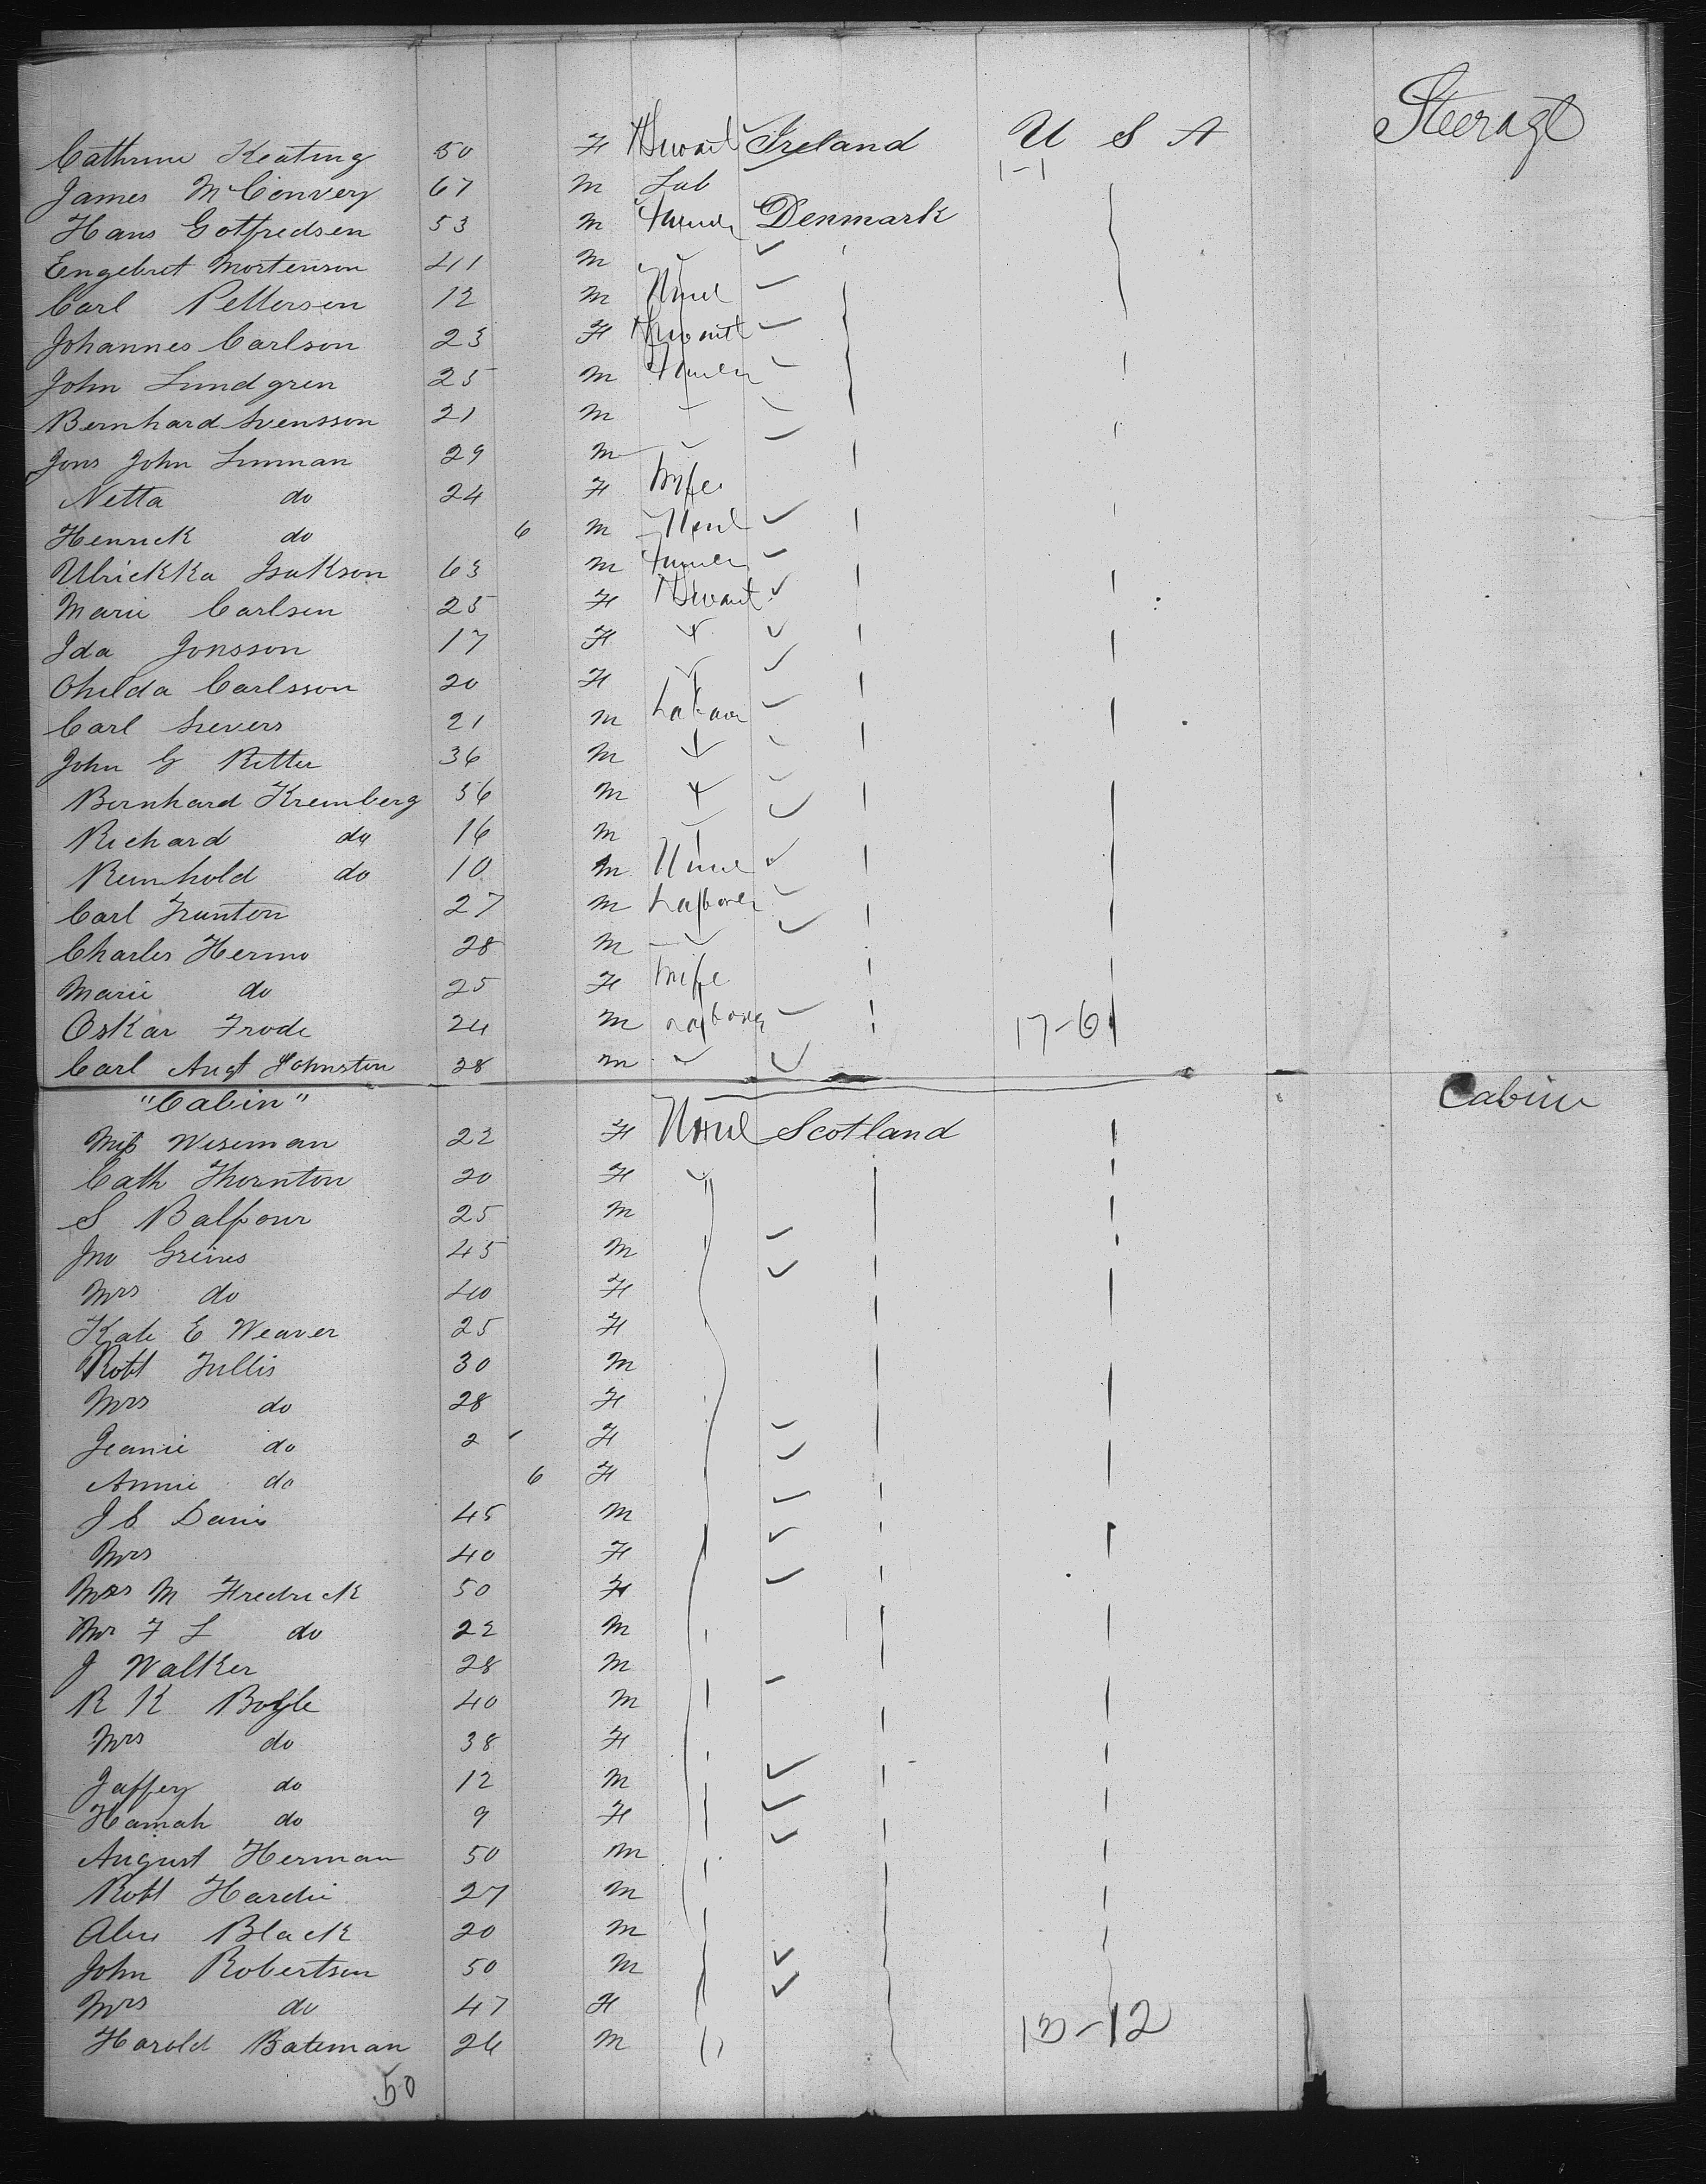 Steerage
Cathrine Keating 50 F Servant Ireland U S A
1-1
James McConvery 67 M Lab
Hans Gotfredsen 53 M Farmer Denmark
Engebret Mortenson 41 M
Carl Pettersen 12 M None
Johannes Carlson 23 F Servant
John Lundgren 25 M Farmer
Bernhard Svensson 21 M
Jons John Linman 29 M
Netta do 24 F Wife
Henrick do 6 M None
Ulrickka Isakson 63 M Farmer
Marie Carlsen 25 F Servant
Ida Jonsson 17 F
Carlsson 20 F
Carl Sievers 21 M Labourer
John G Ritter 36 M
Bernhard Kremberg 56 M
Richard do 16 M
Reinhold do 10 M None
Carl 27 M Labourer
Charles Hermo 28 M
Marie do 25 F Wife
Oskar Frode 24 M Labourer 17-6
Carl Augt Johnston 28 M
"Cabin" Cabin
Miss Wiseman 22 F None Scotland
Cath Thornton 20 F
S Balfour 25 M
Jno 45 M
Mrs do 40 F
Kate E Weaver 25 F
Robt Tullis 30 M
Mrs do 28 F
Jeanie do 2 F
Annie do 6 F
Davis 45 M
Mrs 40 F
Mrs M Fredrick 50 F
Mr F L do 22 M
J Walker 28 M
R K Boyle 40 M
Mrs do 38 F
Jaffery do 12 M
Hannah do 9 F
August Herman 50 M
Robt Hardie 27 M
Alex Black 20 M
John Robertson 50 M
Mrs do 47 F
Harold Bateman 26 M 13-12
50